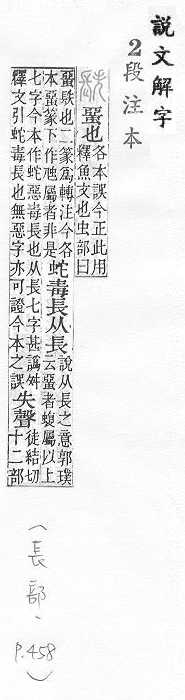 說文解字
2段注本
蝁也
各本誤今正此用
釋魚文也虫部曰
蝁镻也二篆爲轉注今各
本蝁篆下作虺屬者非是
蛇毒長从長
說从長之意郭璞
云蝁者蝮屬以上
七字今本作蛇惡毒長也从長七字甚譌舛
釋文引蛇毒長也無惡字亦可證今本之誤
失聲
徒結切
十二部
(長部、
P.458)